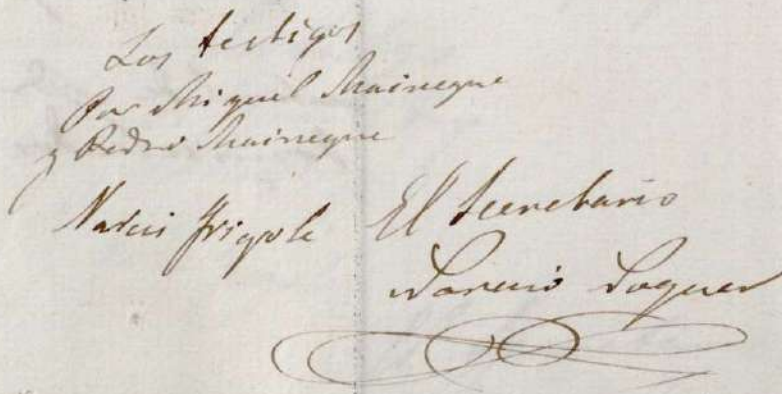 Los testigos
Por Miguel Maineque
y Pedro Maineque
Narcis Frigola
El Secretario
Soguer